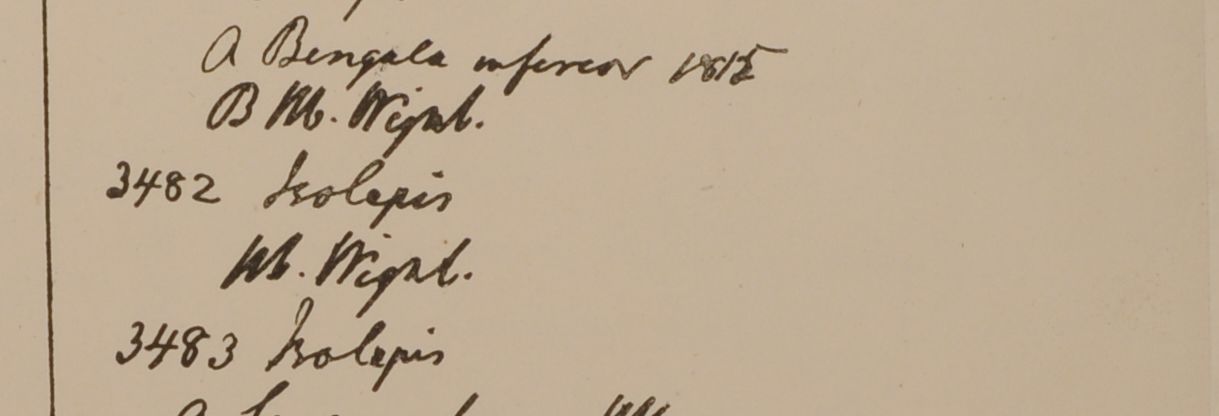 A Bengala inferior 1815
B Hb. Wight.
3482 Isolepis
Hb. Wight.
3483 Isolepis